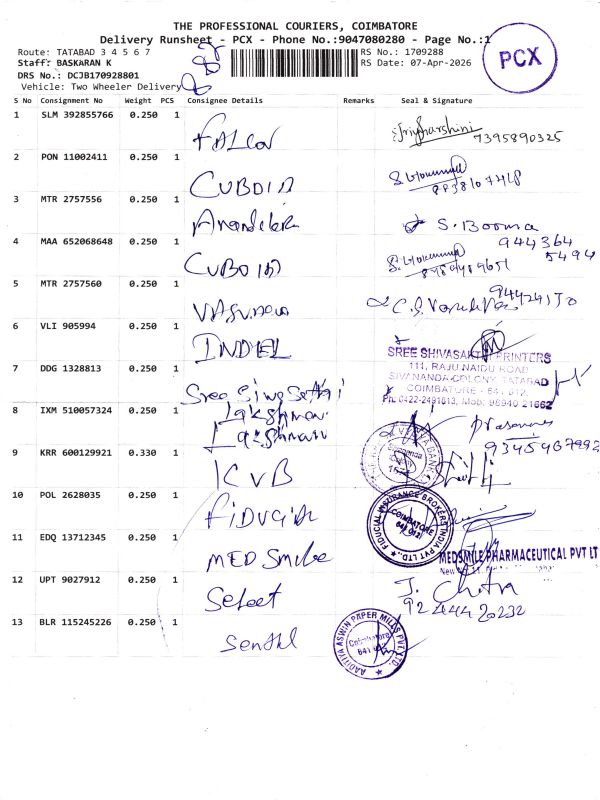 THE PROFESSIONAL COURIERS, COIMBATORE
Delivery Runsheet - PCX - Phone No.:9047080280 - Page No.:1
Route: TATABAD 3 4 5 6 7
RS No.: 1709288
Staff: BASKARAN K
RS Date: 07-Apr-2026
DRS No.: DCJB170928801
Vehicle: Two Wheeler Delivery
PCX
S No Consignment No Weight PCS Consignee Details Remarks Seal & Signature
1 SLM 392855766 0.250 1
FALCON
7395890325
2 PON 11002411 0.250 1
CUBOID
3 MTR 2757556 0.250 1
S. Booma
944364
5494
4 MAA 652068648 0.250 1
CUBOID
5 MTR 2757560 0.250 1
6 VLI 905994 0.250 1
INDIEL
SREE SHIVASAKTHI PRINTERS
111, RAJU NAIDU ROAD
SIVANANDA COLONY, TATABAD
COIMBATORE - 641 012.
Ph: 0422-2491613, Mob: 98940 21662
7 DDG 1328813 0.250 1
8 IXM 510057324 0.250 1
Lakshman
Lakshman
9345467992
9 KRR 600129921 0.330 1
KVB
10 POL 2628035 0.250 1
FIDUCIAL
FIDUCIAL INSURANCE BROKERS INDIA PVT LTD.
COIMBATORE
641 012
11 EDQ 13712345 0.250 1
MED Smile
MEDSMILE PHARMACEUTICAL PVT LT
12 UPT 9027912 0.250 1
Select
J. Chitra
9244420232
13 BLR 115245226 0.250 1
Senthil
AADITIYA ASWIN PAPER MILLS PVT. LTD.
Coimbatore